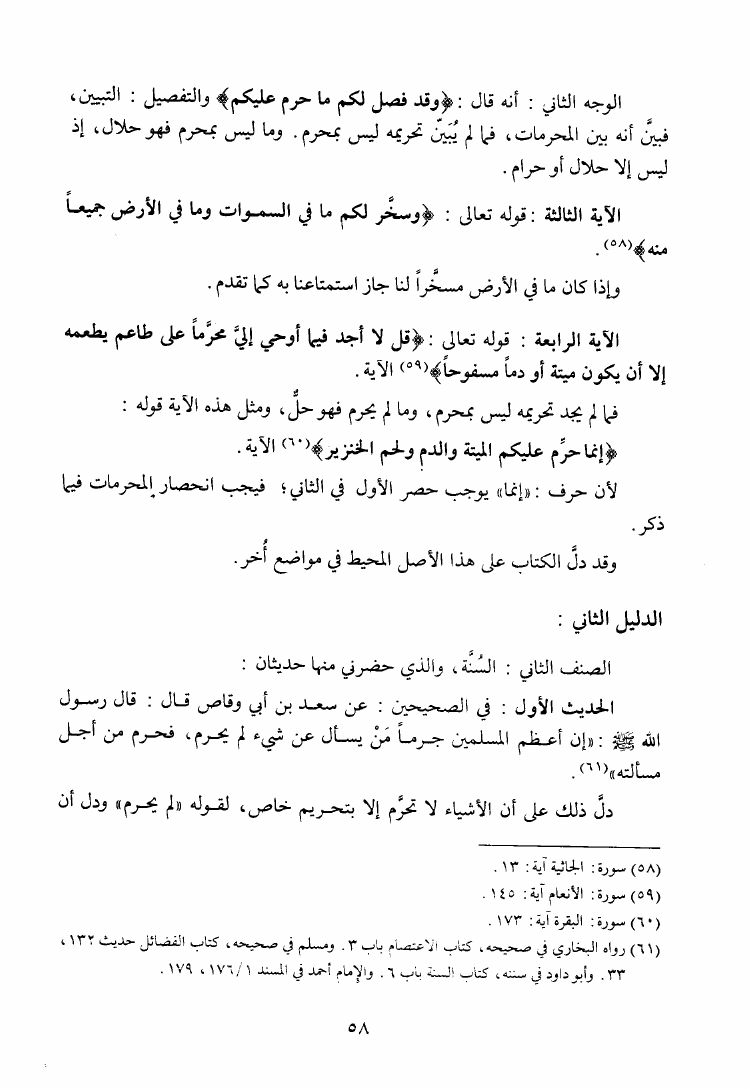 الوجه الثاني : أنه قال : ﴿وقد فصل لكم ما حرم عليكم﴾ والتفصيل : التبيين،
فبينَّ أنه بين المحرمات، فما لم يُبَينّ تحريمه ليس بمحرم. وما ليس بمحرم فهو حلال، إذ
ليس إلا حلال أو حرام.
الآية الثالثة : قوله تعالى : ﴿وسخَّر لكم ما في السموات وما في الأرض جميعاً
منه﴾(٥٨).
وإذا كان ما في الأرض مسخَّراً لنا جاز استمتاعنا به كما تقدم.
الآية الرابعة : قوله تعالى : ﴿قل لا أجد فيما أوحي إليَّ محرَّماً على طاعم يطعمه
إلا أن يكون ميتة أو دماً مسفوحاً﴾(٥٩) الآية.
فما لم يجد تحريمه ليس بمحرم، وما لم يحرم فهو حلٌّ، ومثل هذه الآية قوله :
﴿إنما حرَّم عليكم الميتة والدم ولحم الخنزير﴾(٦٠) الآية.
لأن حرف : «إنما» يوجب حصر الأول في الثاني؛ فيجب انحصار المحرمات فيما
ذكر.
وقد دلَّ الكتاب على هذا الأصل المحيط في مواضع أُخر.
الدليل الثاني :
الصنف الثاني : السُنَّة، والذي حضرني منها حديثان :
الحديث الأول : في الصحيحين : عن سعد بن أبي وقاص قال : قال رسول
الله ﷺ : «إن أعظم المسلمين جرماً مَنْ يسأل عن شيء لم يحرم، فحرم من أجل
مسألته»(٦١).
دلَّ ذلك على أن الأشياء لا تحرَّم إلا بتحريم خاص، لقوله «لم يحرم» ودل أن
(٥٨) سورة: الجاثية آية: ١٣.
(٥٩) سورة: الأنعام آية: ١٤٥.
(٦٠) سورة: البقرة آية: ١٧٣.
(٦١) رواه البخاري في صحيحه، كتاب الاعتصام باب ٣. ومسلم في صحيحه، كتاب الفضائل حديث ١٣٢،
٣٣. وأبو داود في سننه، كتاب السنة باب ٦. والإمام أحمد في المسند ١٧٦/١، ١٧٩.
٥٨